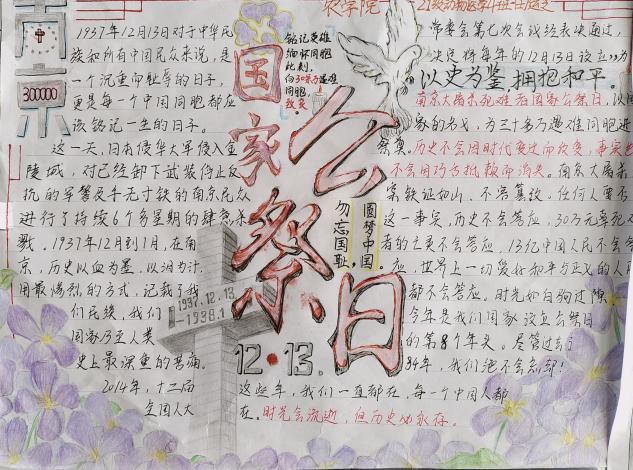 农学院
南京
300000
国家公祭日
12·13.
1937.12.13.
-1938.1
铭记英雄
缅怀同胞
此刻,
向30万遇难
同胞
致哀。
以史为鉴,拥抱和平。
勿忘国耻,
圆梦中国。
1937年12月13日对于中华民
族和所有中国民众来说,是
一个沉重而耻辱的日子,
更是每一个中国同胞都应
该铭记一生的日子。
这一天,日本侵华大军侵入金
陵城,对已经卸下武装停止反
抗的军警及手无寸铁的南京民众
进行了持续6个多星期的肆意杀
戮。1937年12月到1月,在南
京,历史以血为墨,以泪为计,
用最惨烈的方式,记载了我
们民族,我们
国家乃至人类
史上最深重的苦痛。
2014年,十二届
全国人大
常委会第七次会议经表决通过,
决定将每年的12月13日设立为
南京大屠杀死难者国家公祭日,以国
家的名义,为三十多万遇难同胞进
祭奠。历史不会因时代变迁而改变,事实也
不会因巧舌抵赖而消失。南京大屠杀
案铁证如山、不容篡改。任何人要否
这一事实,历史不会答应,30万无辜死
者的亡灵不会答应,13亿中国人民不会答
应,世界上一切爱好和平与正义的人民
都不会答应。时光如白驹过隙
今年是我们国家设立公祭日
的第8个年头。尽管过去
84年,我们绝不会忘却!
这些年,我们一直都在,每一个中国人都
在。时光会流逝,但历史必永存。